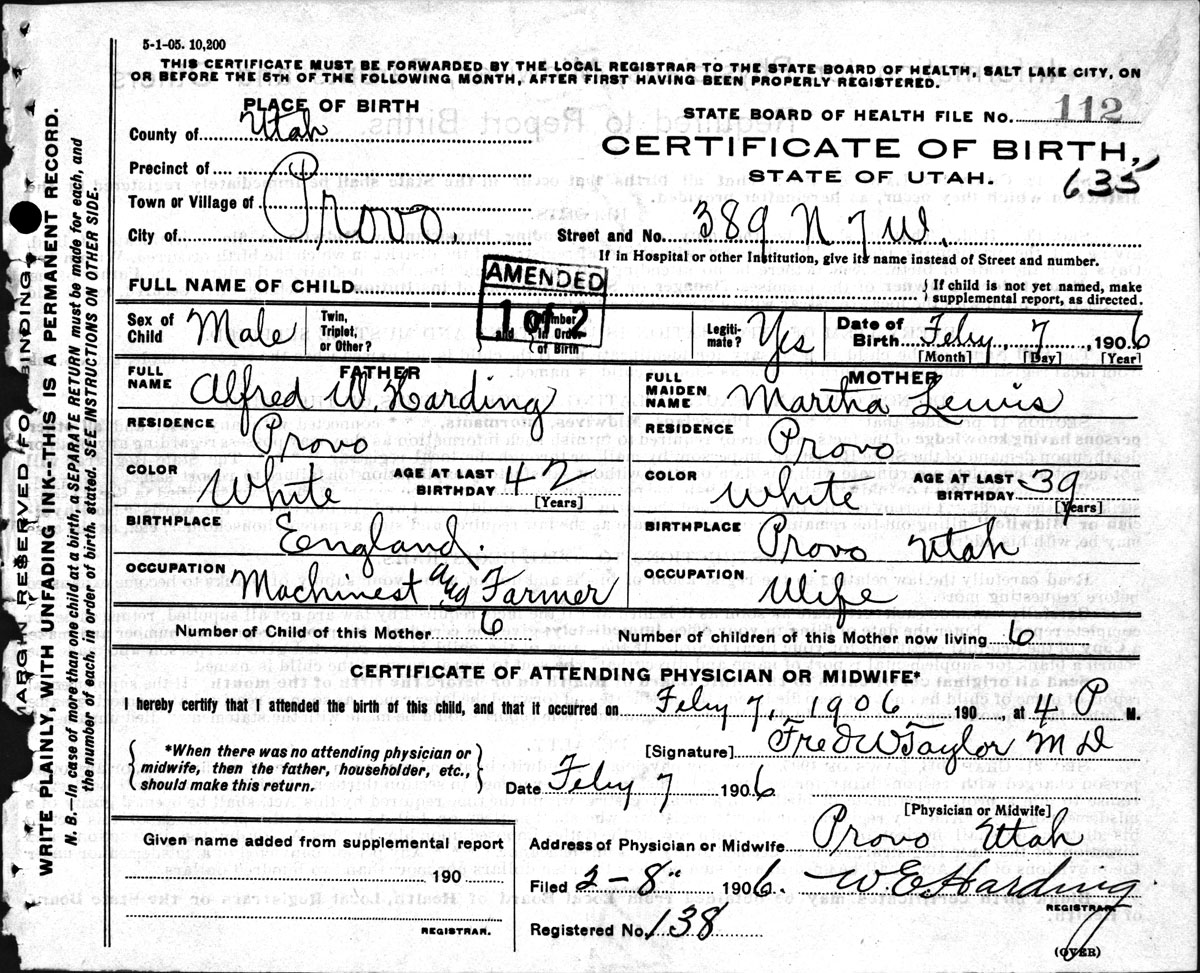 5-1-05. 10,200
THIS CERTIFICATE MUST BE FORWARDED BY THE LOCAL REGISTRAR TO THE STATE BOARD OF HEALTH, SALT LAKE CITY, ON
OR BEFORE THE 5TH OF THE FOLLOWING MONTH, AFTER FIRST HAVING BEEN PROPERLY REGISTERED.
MARGIN RESERVED FO BINDING
WRITE PLAINLY, WITH UNFADING INK--THIS IS A PERMANENT RECORD.
N. B.--In case of more than one child at a birth, a SEPARATE RETURN must be made for each, and
the number of each, in order of birth, stated. SEE INSTRUCTIONS ON OTHER SIDE.
PLACE OF BIRTH
County of Utah
Precinct of
Town or Village of
City of Provo.
STATE BOARD OF HEALTH FILE NO. 112
CERTIFICATE OF BIRTH,
STATE OF UTAH. 635
Street and No. 389 N 7 W.
If in Hospital or other Institution, give its name instead of Street and number.
FULL NAME OF CHILD
AMENDED
1 of 2
If child is not yet named, make
supplemental report, as directed.
Sex of Child Male
Twin, Triplet, or Other?
and Number in Order of Birth
Legiti-mate? Yes
Date of Birth Feby, 7, 1906
[Month] [Day] [Year]
FATHER
FULL NAME Alfred W. Harding
RESIDENCE Provo
COLOR White AGE AT LAST BIRTHDAY 42 [Years]
BIRTHPLACE England.
OCCUPATION Machinest and Farmer
MOTHER
FULL MAIDEN NAME Martha Lewis
RESIDENCE Provo
COLOR White AGE AT LAST BIRTHDAY 39 [Years]
BIRTHPLACE Provo Utah
OCCUPATION Wife
Number of Child of this Mother 6 Number of children of this Mother now living 6
CERTIFICATE OF ATTENDING PHYSICIAN OR MIDWIFE*
I hereby certify that I attended the birth of this child, and that it occurred on Feby 7, 1906 190 , at 4 P M.
*When there was no attending physician or
midwife, then the father, householder, etc.,
should make this return.
[Signature] Fred W Taylor M D
Date Feby 7 1906
[Physician or Midwife]
Address of Physician or Midwife Provo Utah
Given name added from supplemental report
190
REGISTRAR.
Filed 2-8" 1906. W. E. Harding
REGISTRAR.
Registered No. 138
(OVER)